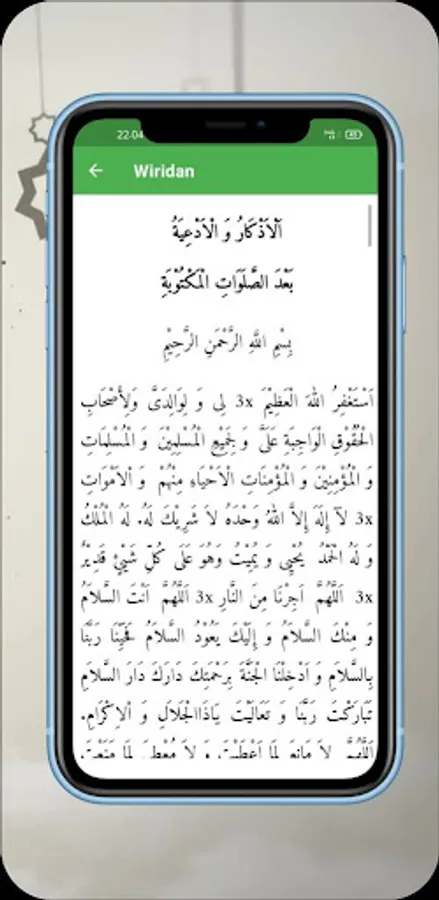 22.04
Wiridan
اَلْاَذْكَارُ وَ الْاَدْعِيَةُ
بَعْدَ الصَّلَوَاتِ الْمَكْتُوْبَةِ
بِسْمِ اللَّهِ الرَّحْمَنِ الرَّحِيْمِ
اَسْتَغْفِرُ اللهَ الْعَظِيْمَ 3x لِى وَ لِوَالِدَىَّ وَلِأَصْحَابِ
الْحُقُوْقِ الْوَاجِبَةِ عَلَىَّ وَ لِجَمِيْعِ الْمُسْلِمِيْنَ وَ الْمُسْلِمَاتِ
وَ الْمُؤْمِنِيْنَ وَ الْمُؤْمِنَاتِ الْاَحْيَاءِ مِنْهُمْ وَ الْاَمْوَاتِ
3x لَآ إِلَهَ إِلاَّ اللهُ وَحْدَهُ لاَ شَرِيْكَ لَهُ. لَهُ الْمُلْكُ
وَ لَهُ الْحَمْدُ يُحْيِى وَ يُمِيْتُ وَهُوَ عَلَى كُلِّ شَيْئٍ قَدِيْرٌ
3x اَللَّهُمَّ اَجِرْنَا مِنَ النَّارِ 3x اَللَّهُمَّ اَنْتَ السَّلاَمُ
وَ مِنْكَ السَّلاَمُ وَ إِلَيْكَ يَعُوْدُ السَّلاَمُ فَحَيِّنَا رَبَّنَا
بِالسَّلاَمِ وَ اَدْخِلْنَا الْجَنَّةَ بِرَحْمَتِكَ دَارَكَ دَارَ السَّلاَمِ
تَبَارَكْتَ رَبَّنَا وَ تَعَالَيْتَ يَاذَاالْجَلاَلِ وَ اْلاِكْرَامِ.
اَللَّهُمَّ لاَ مَانِعَ لِمَا اَعْطَيْتَ وَ لاَ مُعْطِىَ لِمَا مَنَعْتَ